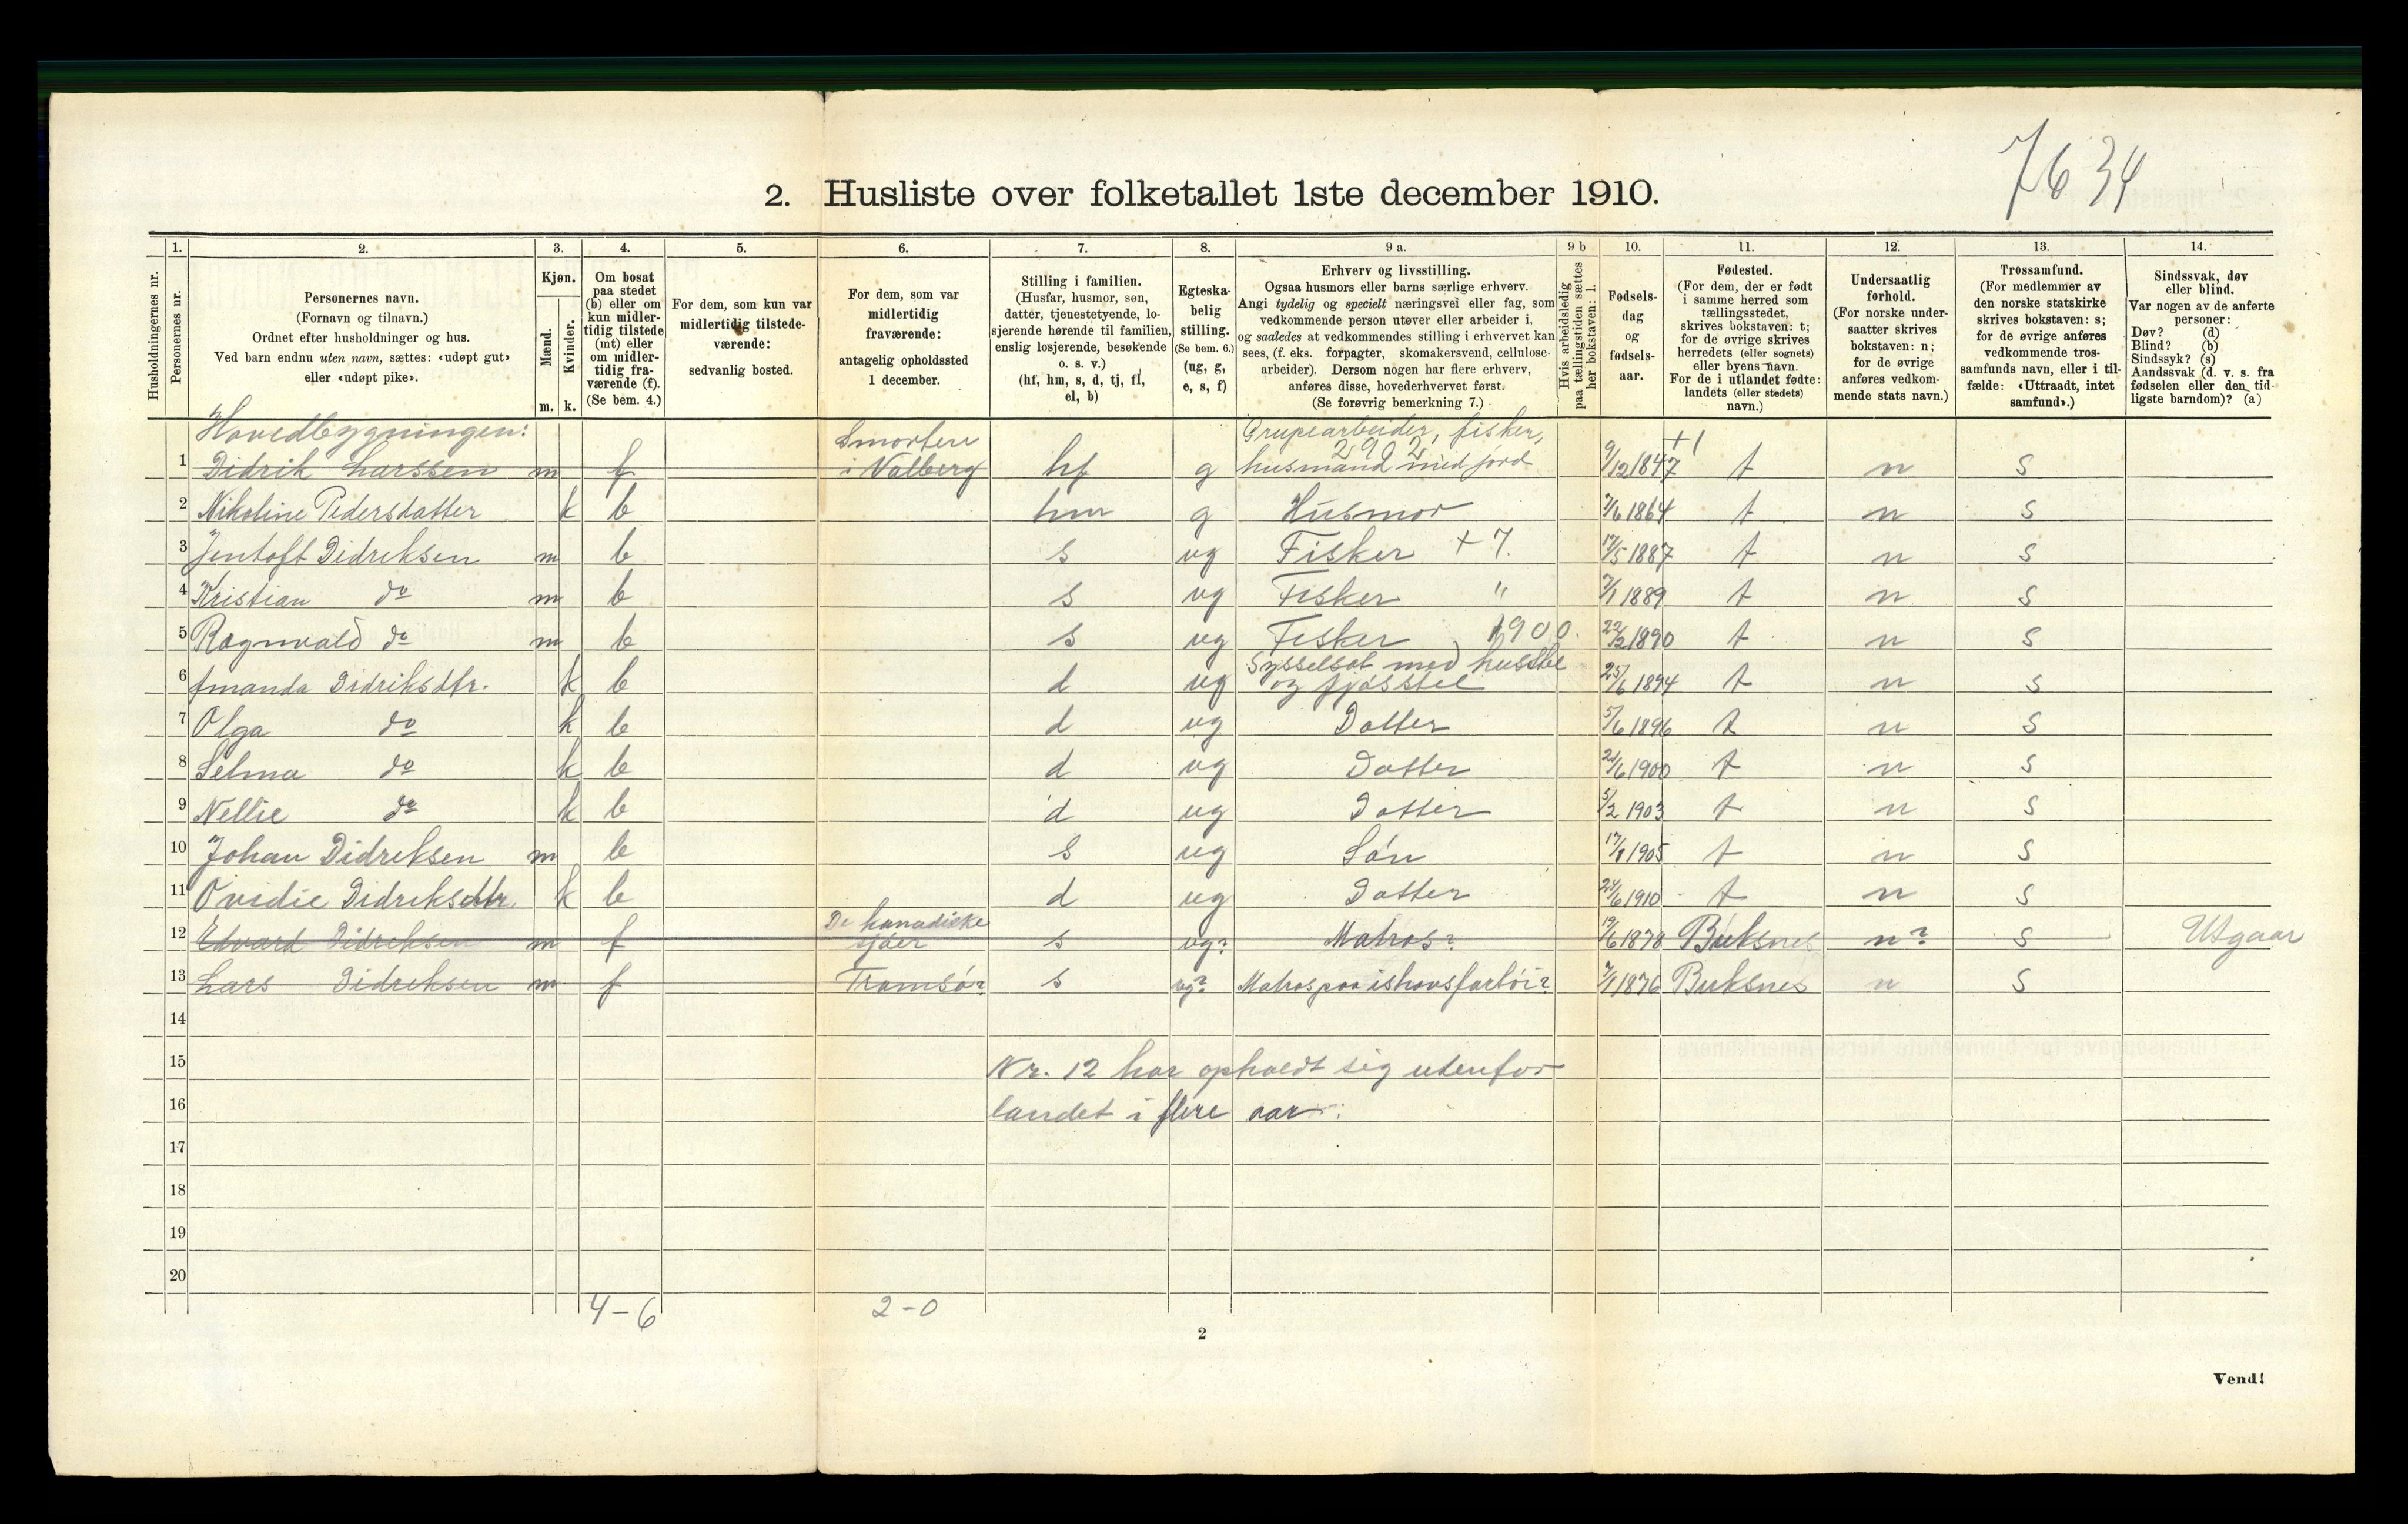 7634
2. Husliste over folketallet 1ste december 1910.
Husholdningernes nr.
1. Personernes nr.
2. Personernes navn. (Fornavn og tilnavn.) Ordnet efter husholdninger og hus. Ved barn endnu uten navn, sættes: «udøpt gut» eller «udøpt pike».
3. Kjøn. Mænd. m. Kvinder. k.
4. Om bosat paa stedet (b) eller om kun midlertidig tilstede (mt) eller om midlertidig fraværende (f). (Se bem. 4.)
5. For dem, som kun var midlertidig tilstedeværende: sedvanlig bosted.
6. For dem, som var midlertidig fraværende: antagelig opholdssted 1 december.
7. Stilling i familien. (Husfar, husmor, søn, datter, tjenestetyende, losjerende hørende til familien, enslig losjerende, besøkende o. s. v.) (hf, hm, s, d, tj, fl, el, b)
8. Egteskabelig stilling. (Se bem. 6.) (ug, g, e, s, f)
9 a. Erhverv og livsstilling. Ogsaa husmors eller barns særlige erhverv. Angi tydelig og specielt næringsvei eller fag, som vedkommende person utøver eller arbeider i, og saaledes at vedkommendes stilling i erhvervet kan sees, (f. eks. forpagter, skomakersvend, cellulosearbeider). Dersom nogen har flere erhverv, anføres disse, hovederhvervet først. (Se forøvrig bemerkning 7.)
9 b Hvis arbeidsledig paa tællingstiden sættes her bokstaven: l.
10. Fødselsdag og fødselsaar.
11. Fødested. (For dem, der er født i samme herred som tællingsstedet, skrives bokstaven: t; for de øvrige skrives herredets (eller sognets) eller byens navn. For de i utlandet fødte: landets (eller stedets) navn.)
12. Undersaatlig forhold. (For norske undersaatter skrives bokstaven: n; for de øvrige anføres vedkommende stats navn.)
13. Trossamfund. (For medlemmer av den norske statskirke skrives bokstaven: s; for de øvrige anføres vedkommende trossamfunds navn, eller i tilfælde: «Uttraadt, intet samfund».)
14. Sindssvak, døv eller blind. Var nogen av de anførte personer: Døv? (d) Blind? (b) Sindssyk? (s) Aandssvak (d. v. s. fra fødselen eller den tidligste barndom)? (a)
Hovedbygningen:
1 Didrik Larssen m f Smorten i Valberg hf g Grupearbeider, fisker, husmand med jord 2902 9/12 1847 +1 t n s
2 Nikoline Pedersdatter k b hm g Husmor 7/6 1864 t n s
3 Jentoft Didreksen m b s ug Fisker +7. 17/5 1887 t n s
4 Kristian do m b s ug Fisker " 7/1 1889 t n s
5 Ragnvald do m b s ug Fisker 1900. 22/2 1890 t n s
6 Amanda Didriksdtr. k b d ug Sysselsat med husstel og fjøsstel 25/6 1894 t n s
7 Olga do k b d ug Datter 5/6 1896 t n s
8 Selma do k b d ug Datter 21/6 1900 t n s
9 Nellie do k b d ug Datter 5/2 1903 t n s
10 Johan Didreksen m b s ug Søn 17/8 1905 t n s
11 Ovidie Didreksdtr. k b d ug Datter 24/6 1910 t n s
12 Edvard Didreksen m f De kanadiske sjøer s ug? Matros? 19/6 1878 Buksnes n? s Utgaar
13 Lars Didreksen m f Tromsø? s ug? Matros paa ishavsfartøi? 7/1 1876 Buksnes n s
14
15 Nr. 12 har opholdt sig utenfor
16 landet i flere aar.
17
18
19
20
4-6 2-0
2
Vend!